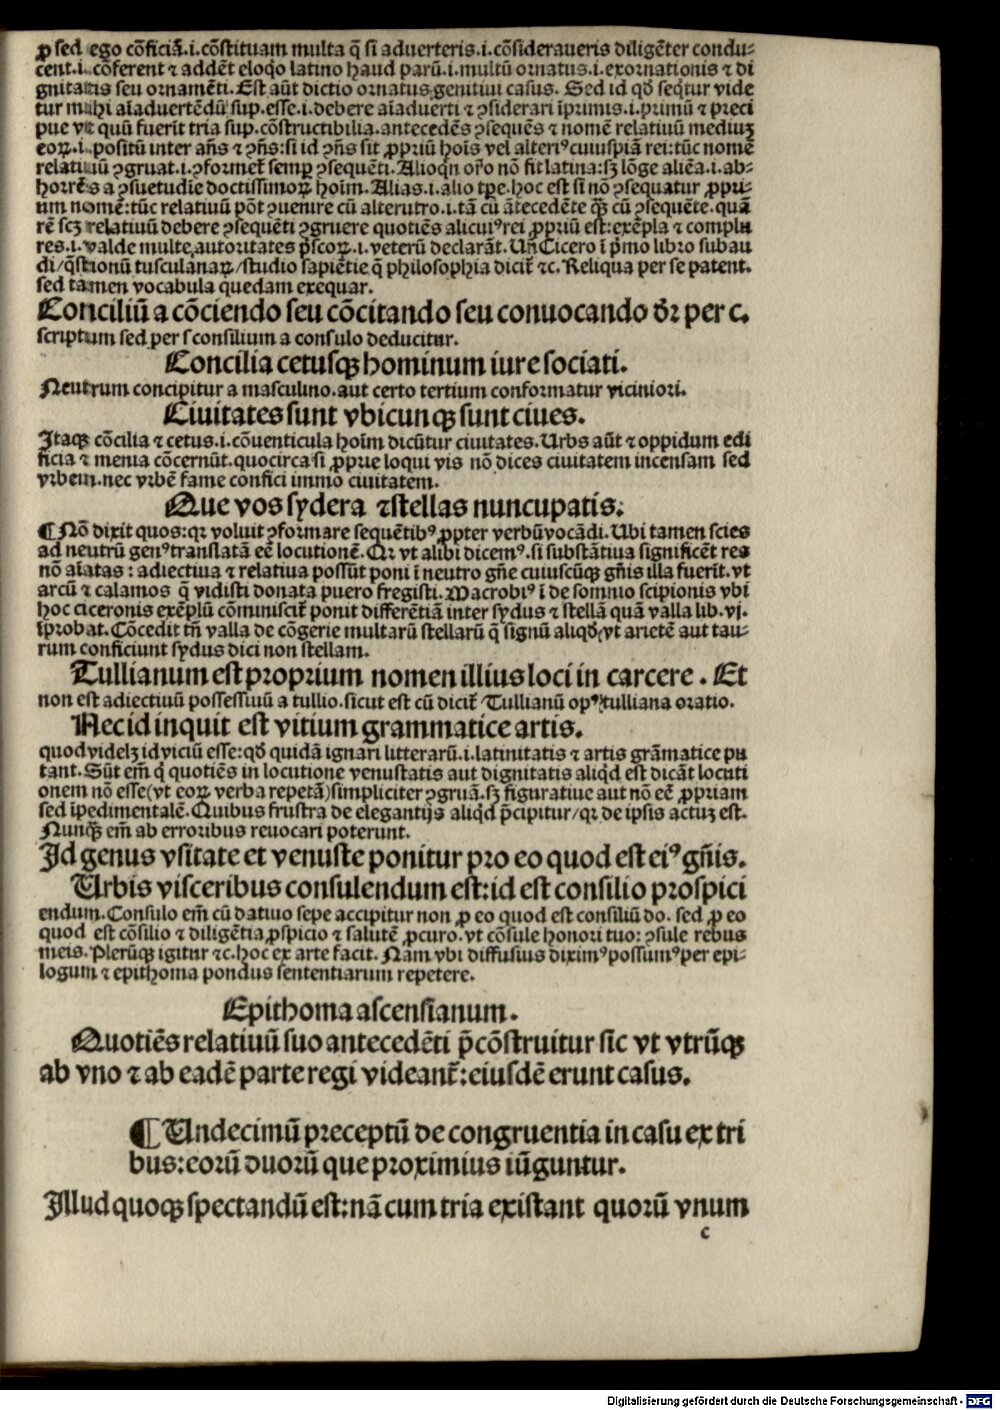 ꝓ sed ego cōficiā.i.cōstituam multa q̄ si aduerteris.i.cōsideraueris diligēter condu-
cent.i.cōferent ⁊ addēt eloq̇o latino haud parū.i.multū ornatus.i.exornationis ⁊ di
gnitatis seu ornamēti. Est aūt dictio ornatus genitiui casus. Sed id qď seq̄tur vide
tur mihi aīaduertēdū sup.esse.i.debere aīaduerti ⁊ ↄsiderari īprimis.i.primū ⁊ preci
pue vt quū fuerīt tria sup.cōstructibilia.antecedēs ↄsequēs ⁊ nomē relatiuū mediuꝫ
eoꝝ.i.positū inter añs ⁊ ↄñs:si id ↄñs sit ꝓpriū hoīs vel alteriꝰ cuiuspiā rei:tūc nomē
relatiuū ↄgruat.i.ↄformet᷑ semꝑ ↄsequēti. Alioqn̄ or̄o nō fit latina:sꝫ lōge aliēa.i.ab-
horrēs a ↄsuetudīe doctissimoꝝ hoīm. Alias.i.alio tꝑe.hoc est si nō ↄsequatur ꝓpri-
um nomē:tūc relatiuū pōt ↄuenire cū alterutro.i.tā cū ātecedēte qꝫ̄ cū ↄsequēte.quā
rē scꝫ relatiuū debere ↄsequēti ↄgruere quotiēs alicuiꝰ rei ꝓpriū est:exēpla ⁊ complu
res.i.valde multe autoritates p̄scoꝝ.i.veterū declarāt. Uñ Cicero ī p̄mo libro subau
di/q̄stionū tusculanaꝝ/studio sapiētie q̄ philosophia dicit᷑ ⁊c. Reliqua per se patent.
sed tamen vocabula quedam exequar.
Conciliū a cōciendo seu cōcitando seu conuocando dr̄ per c.
scriptum sed per s consilium a consulo deducitur.
Concilia cetusqꝫ hominum iure sociati.
Neutrum concipitur a masculino.aut certo tertium conformatur viciniori.
Ciuitates sunt vbicunqꝫ sunt ciues.
Itaqꝫ cōcilia ⁊ cetus.i.cōuenticula hoīm dicūtur ciuitates. Urbs aūt ⁊ oppidum edi
ficia ⁊ menia cōcernūt.quocirca si ꝓprie loqui vis nō dices ciuitatem incensam sed
vrbem.nec vrbē fame confici immo ciuitatem.
Que vos sydera ⁊ stellas nuncupatis.
¶ Nō dixit quos:qꝛ voluit ↄformare sequētibꝰ ꝓpter verbū vocādi. Ubi tamen scies
ad neutrū genꝰ translatā eē locutionē. Qꝛ vt alibi dicemꝰ.si substātiua significēt res
nō aīatas: adiectiua ⁊ relatiua possūt poni ī neutro gn̄e cuiuscūqꝫ gn̄is illa fuerīt.vt
arcū ⁊ calamos q̄ vidisti donata puero fregisti. Macrobiꝰ ī de somnio scipionis vbi
hoc ciceronis exēplū cōminiscit᷑ ponit differētiā inter sydus ⁊ stellā quā valla lib.vj.
īprobat. Cōcedit tn̄ valla de cōgerie multarū stellarū q̄ signū aliqď(vt arietē aut tau-
rum conficiunt sydus dici non stellam.
Tullianum est proprium nomen illius loci in carcere. Et
non est adiectiuū possessiuū a tullio.sicut est cū dicit᷑ Tullianū opꝰ:tulliana oratio.
Nec id inquit est vitium grammatice artis.
quod videlꝫ id viciū esse:qď quidā ignari litterarū.i.latinitatis ⁊ artis grāmatice pu
tant. Sūt em̄ q̇ quotiēs in locutione venustatis aut dignitatis aliqd̄ est dicāt locuti
onem nō esse(vt eoꝝ verba repetā)simpliciter ↄgruā.sꝫ figuratiue aut nō eē ꝓpriam
sed īpedimentalē. Quibus frustra de elegantijs aliqd̄ p̄cipitur/qꝛ de ipsis actuꝫ est.
Nunqꝫ̄ em̄ ab erroribus reuocari poterunt.
Id genus vsitate et venuste ponitur pro eo quod est eiꝰ gn̄is.
Urbis visceribus consulendum est:id est consilio prospici
endum. Consulo em̄ cū datiuo sepe accipitur non ꝓ eo quod est consiliū do. sed ꝓ eo
quod est cōsilio ⁊ diligētia ꝓspicio ⁊ salutē ꝓcuro.vt cōsule honori tuo: ↄsule rebus
meis. Plerūqꝫ igitur ⁊c.hoc ex arte facit. Nam vbi diffusius diximꝰ possumꝰ per epi-
logum ⁊ epithoma pondus sententiarum repetere.
Epithoma ascensianum.
Quotiēs relatiuū suo antecedēti p̄cōstruitur sic vt vtrūqꝫ
ab vno ⁊ ab eadē parte regi videant᷑:eiusdē erunt casus.
¶ Undecimū preceptū de congruentia in casu ex tri
bus:eorū duorū que proximius iūguntur.
Illud quoqꝫ spectandū est:nā cum tria existant quorū vnum
c
Digitalisierung gefördert durch die Deutsche Forschungsgemeinschaft - DFG